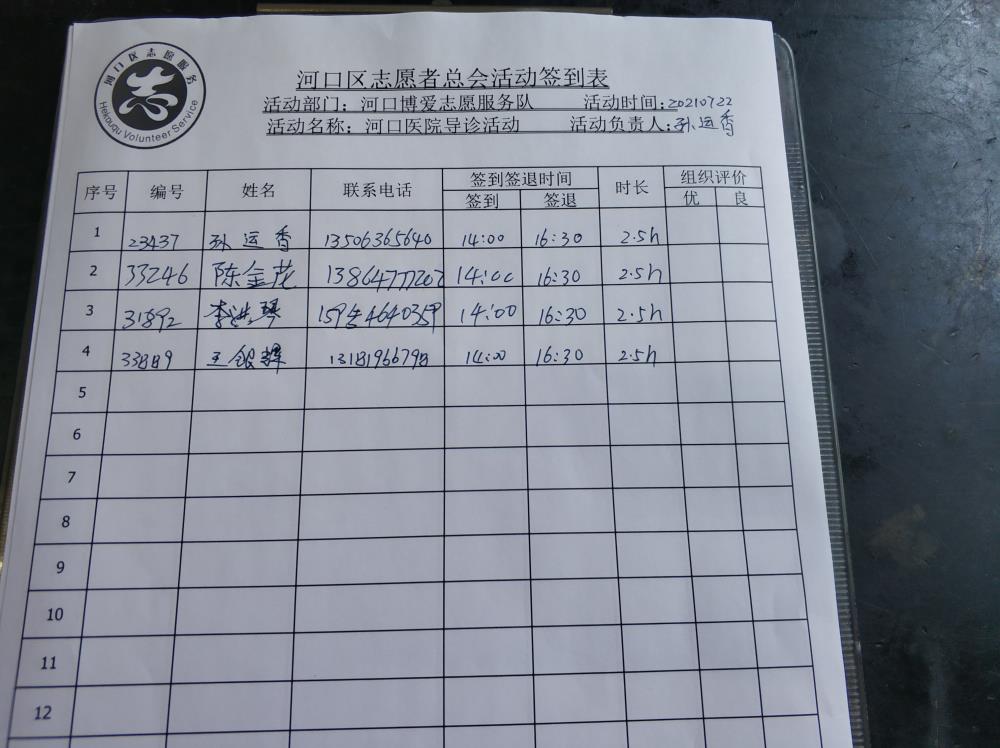 河口区志愿服务
志
Hekouqu Volunteer Service
河口区志愿者总会活动签到表
活动部门：河口博爱志愿服务队 活动时间：20210722
活动名称：河口医院导诊活动 活动负责人：孙运香
序号 编号 姓名 联系电话 签到签退时间 时长 组织评价
签到 签退 优 良
1 23437 孙运香 13506365640 14:00 16:30 2.5h
2 33246 陈金花 13864777207 14:00 16:30 2.5h
3 31892 李洪琴 14:00 16:30 2.5h
4 33889 王银辉 13181966798 14:00 16:30 2.5h
5
6
7
8
9
10
11
12